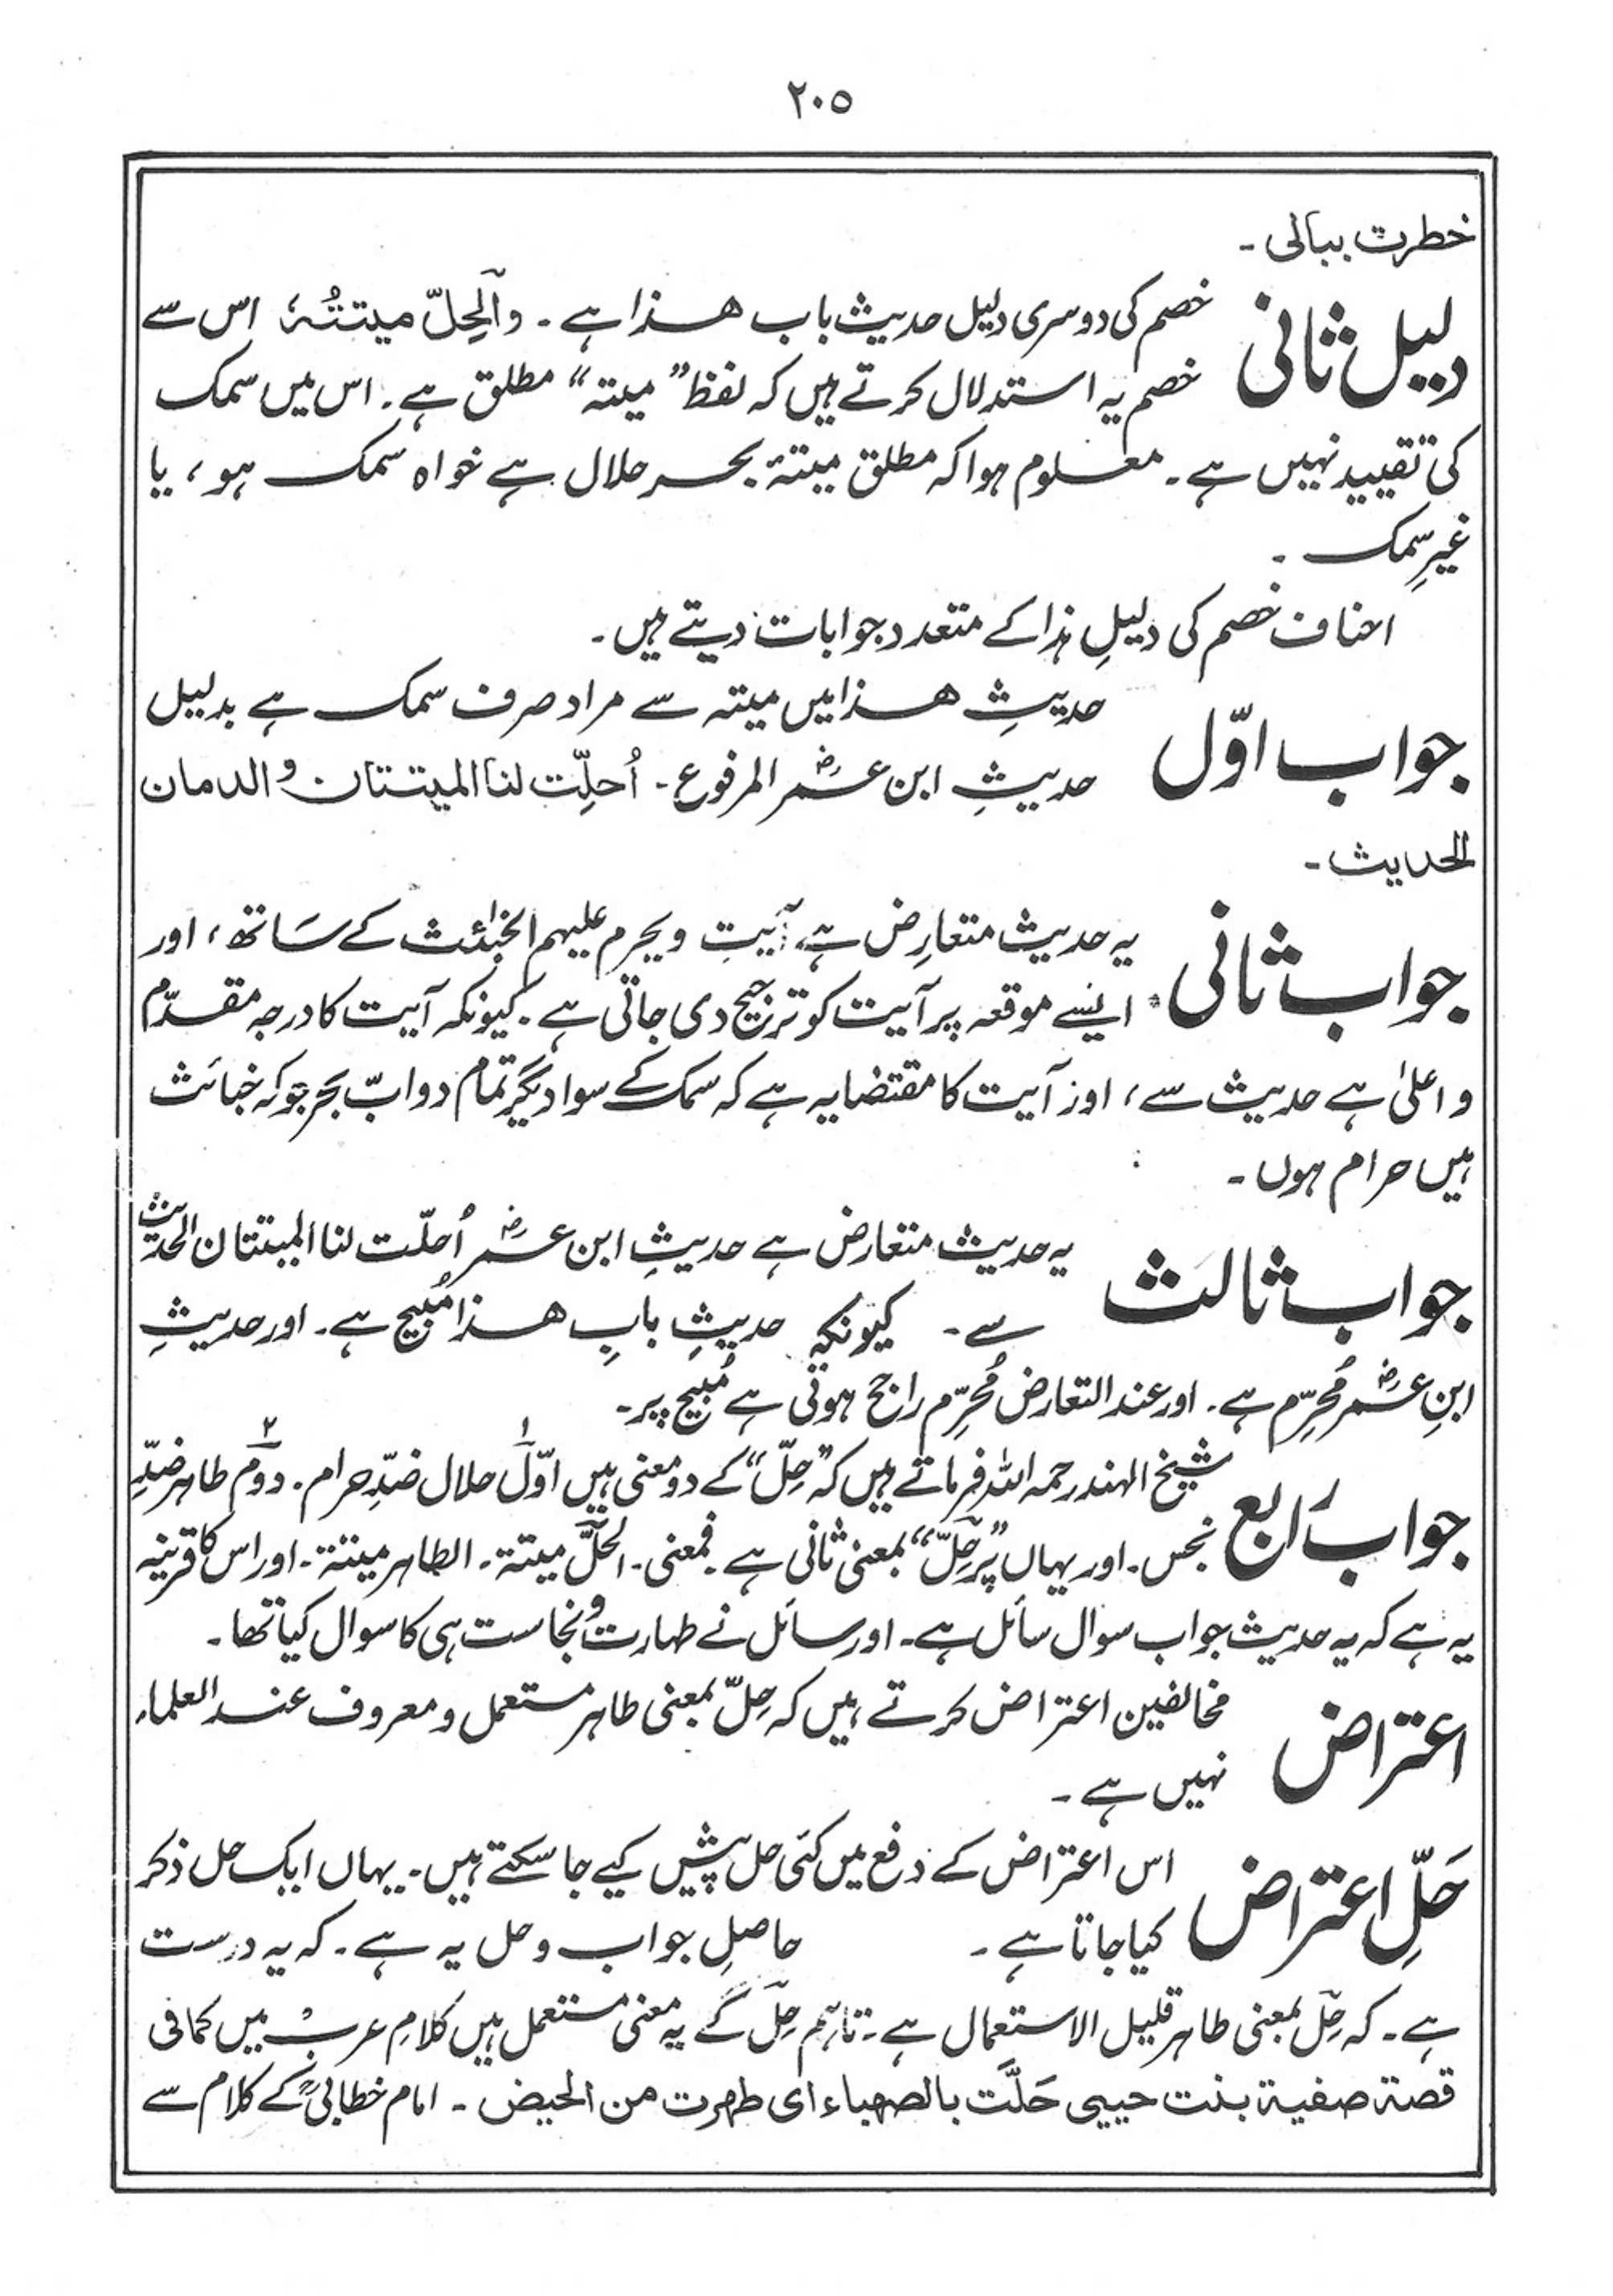 ۲۰۵
خطرت ببالی ۔
دلیل ثانی خصم کی دوسری دلیل حدیث باب ھذا ہے ۔ والحِلّ میتتُہٗ اس سے
خصم یہ استدلال کرتے ہیں کہ لفظ ”میتہ“ مطلق ہے ۔ اس میں سمک
کی تقیید نہیں ہے ۔ معلوم ہوا کہ مطلق میتۂ بحر حلال ہے خواہ سمک ہو ، یا
غیرِ سمک ۔
احناف خصم کی دلیلِ ہذا کے متعدد جوابات دیتے ہیں ۔
جواب اوّل حدیثِ ھذا میں میتہ سے مراد صرف سمک ہے بدلیل
حدیثِ ابن عمرؓ المرفوع ۔ اُحلِّت لنا المیتتان والدمان
الحدیث ۔
جواب ثانی یہ حدیث متعارِض ہے آیتِ ویحرم علیہم الخبٰئث کے سَاتھ ، اور
ایسے موقعہ پر آیت کو ترجیح دی جاتی ہے ۔ کیونکہ آیت کا درجہ مقدّم
و اعلیٰ ہے حدیث سے ، اور آیت کا مقتضا یہ ہے کہ سمک کے سوا دیگر تمام دوابّ بحر جو کہ خبائث
ہیں حرام ہوں ۔
جواب ثالث یہ حدیث متعارض ہے حدیثِ ابن عمرؓ اُحلّت لنا المیتتان الحدیث
سے ۔ کیونکہ حدیثِ بابِ ھذا مُبیح ہے ۔ اور حدیثِ
ابنِ عمرؓ مُحرِّم ہے ۔ اور عند التعارض مُحرِّم راجح ہوتی ہے مُبیح پر ۔
جواب رابع شیخ الہند رحمہ اللہ فرماتے ہیں کہ ”حِلّ“ کے دو معنی ہیں اوّل۱ حلال ضدِّ حرام ۔ دوم۲ طاہر ضدِّ
نجس ۔ اور یہاں پر ”حِلّ“ بمعنی ثانی ہے ۔ فمعنی ۔ الحلّ میتتۃ ۔ الطاہر میتتۃ ۔ اور اس کا قرینہ
یہ ہے کہ یہ حدیث جواب سوال سائل ہے ۔ اور سائل نے طہارت و نجاست ہی کا سوال کیا تھا ۔
اعتراض مخالفین اعتراض کرتے ہیں کہ حِلّ بمعنی طاہر مستعمل و معروف عند العلماء
نہیں ہے ۔
حَلِّ اعتراض اس اعتراض کے دفع میں کئی حل پیش کیے جا سکتے ہیں ۔ یہاں ایک حل ذکر
کیا جاتا ہے ۔ حاصلِ جواب و حل یہ ہے ۔ کہ یہ درست
ہے ۔ کہ حِلّ بمعنی طاہر قلیل الاستعمال ہے ۔ تاہم حِلّ کے یہ معنی مستعمل ہیں کلامِ عرب میں کما فی
قصۃ صفیۃ بنت حیيی حَلَّت بالصھباء ای طھرت من الحیض ۔ امام خطابیؒ کے کلام سے